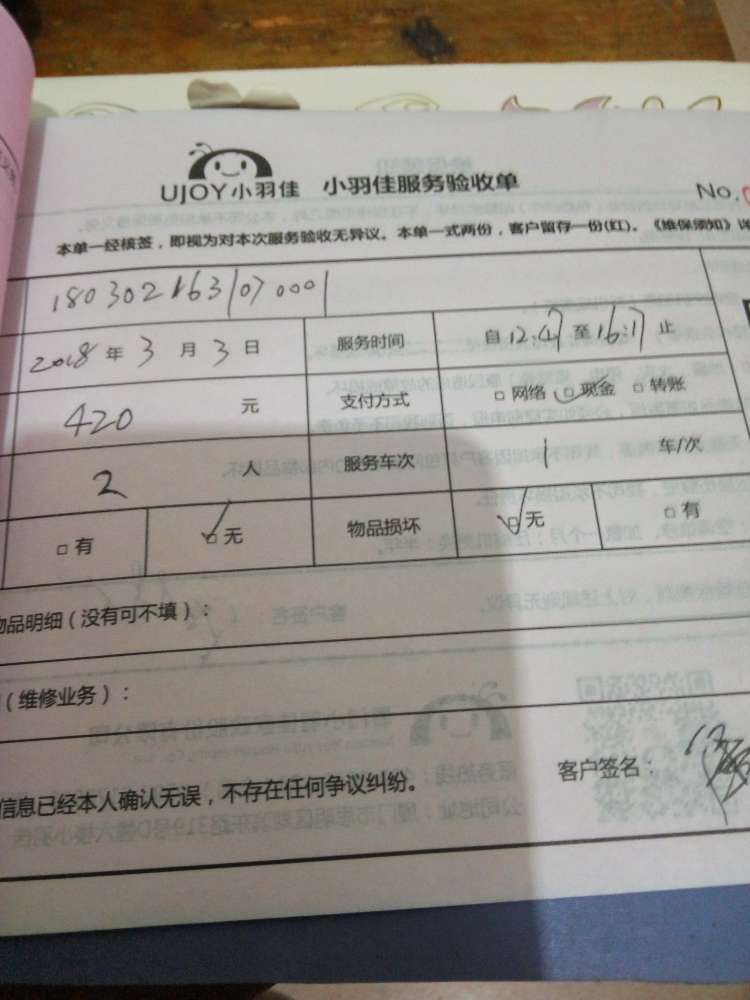 UJOY小羽佳 小羽佳服务验收单
No.
本单一经核签，即视为对本次服务验收无异议。本单一式两份，客户留存一份(红)。《维保须知》详
2018 年 3 月 3 日 服务时间 自 12:47 至 16:17 止
420 元 支付方式 □ 网络 □ 现金 □ 转账
2 人 服务车次 1 车/次
□ 有 □ 无 物品损坏 □ 无 □ 有
物品明细（没有可不填）：
（维修业务）：
信息已经本人确认无误，不存在任何争议纠纷。
客户签名：